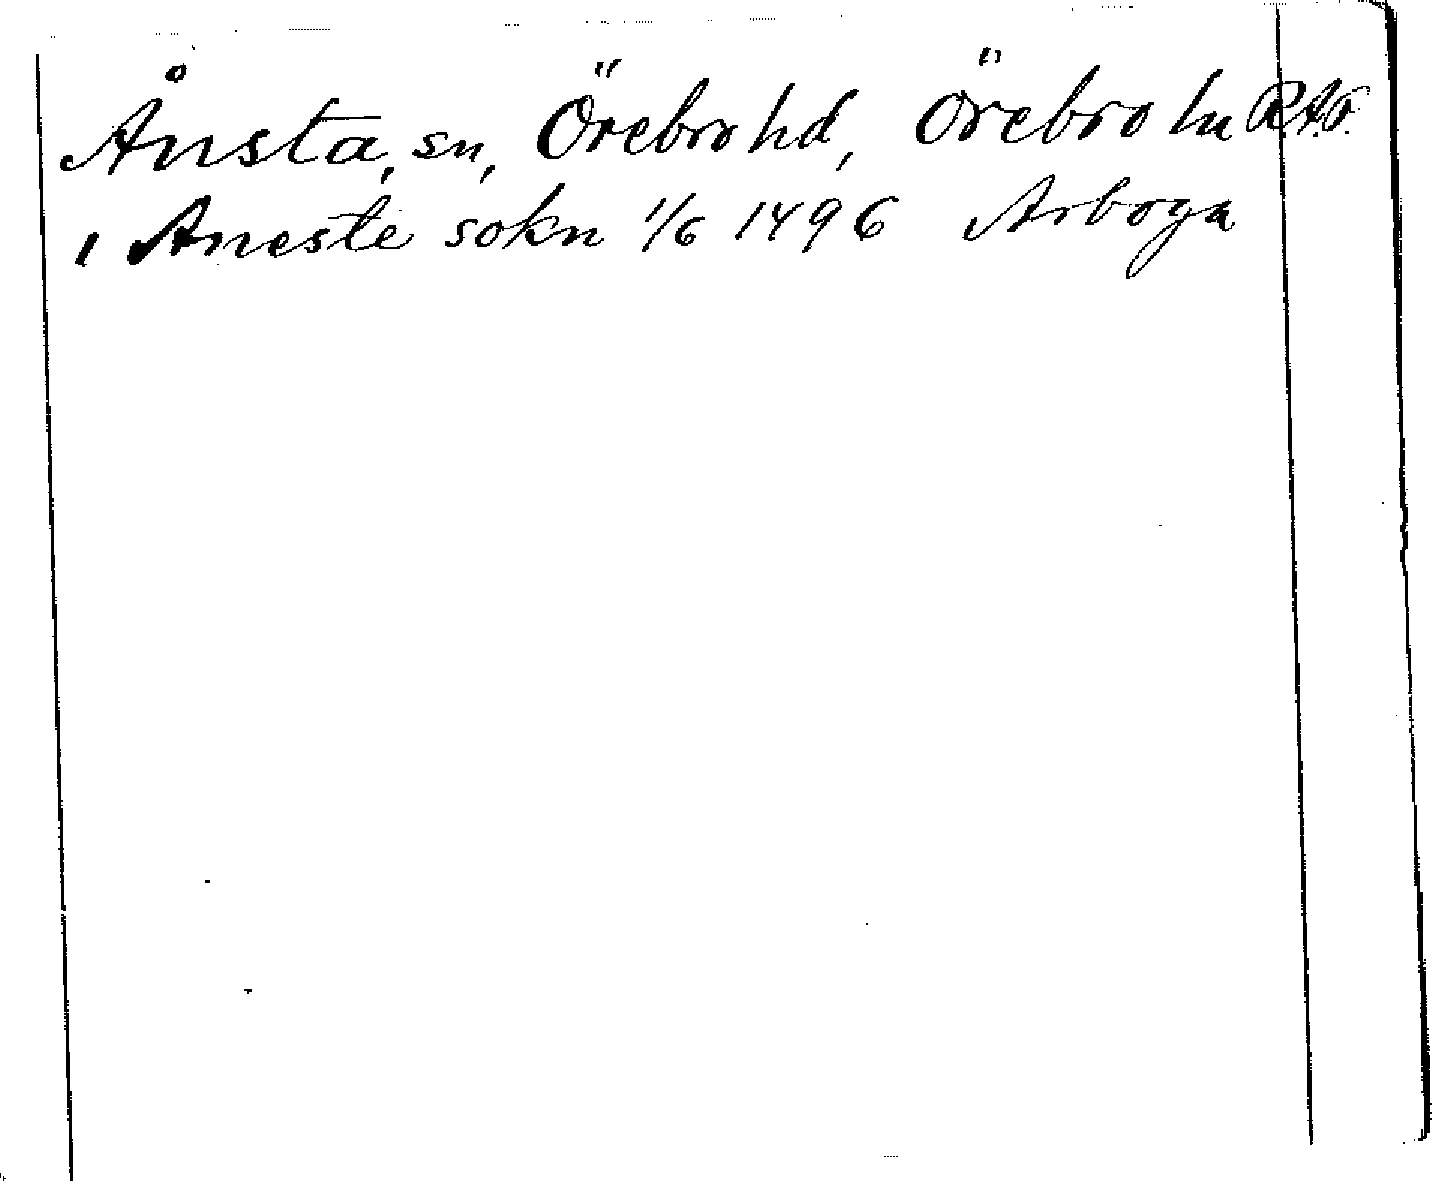 Ånsta, sn, Örebro hd, Örebro ln R.A.P.
i Aneste sokn 1/6 1496 Arboga